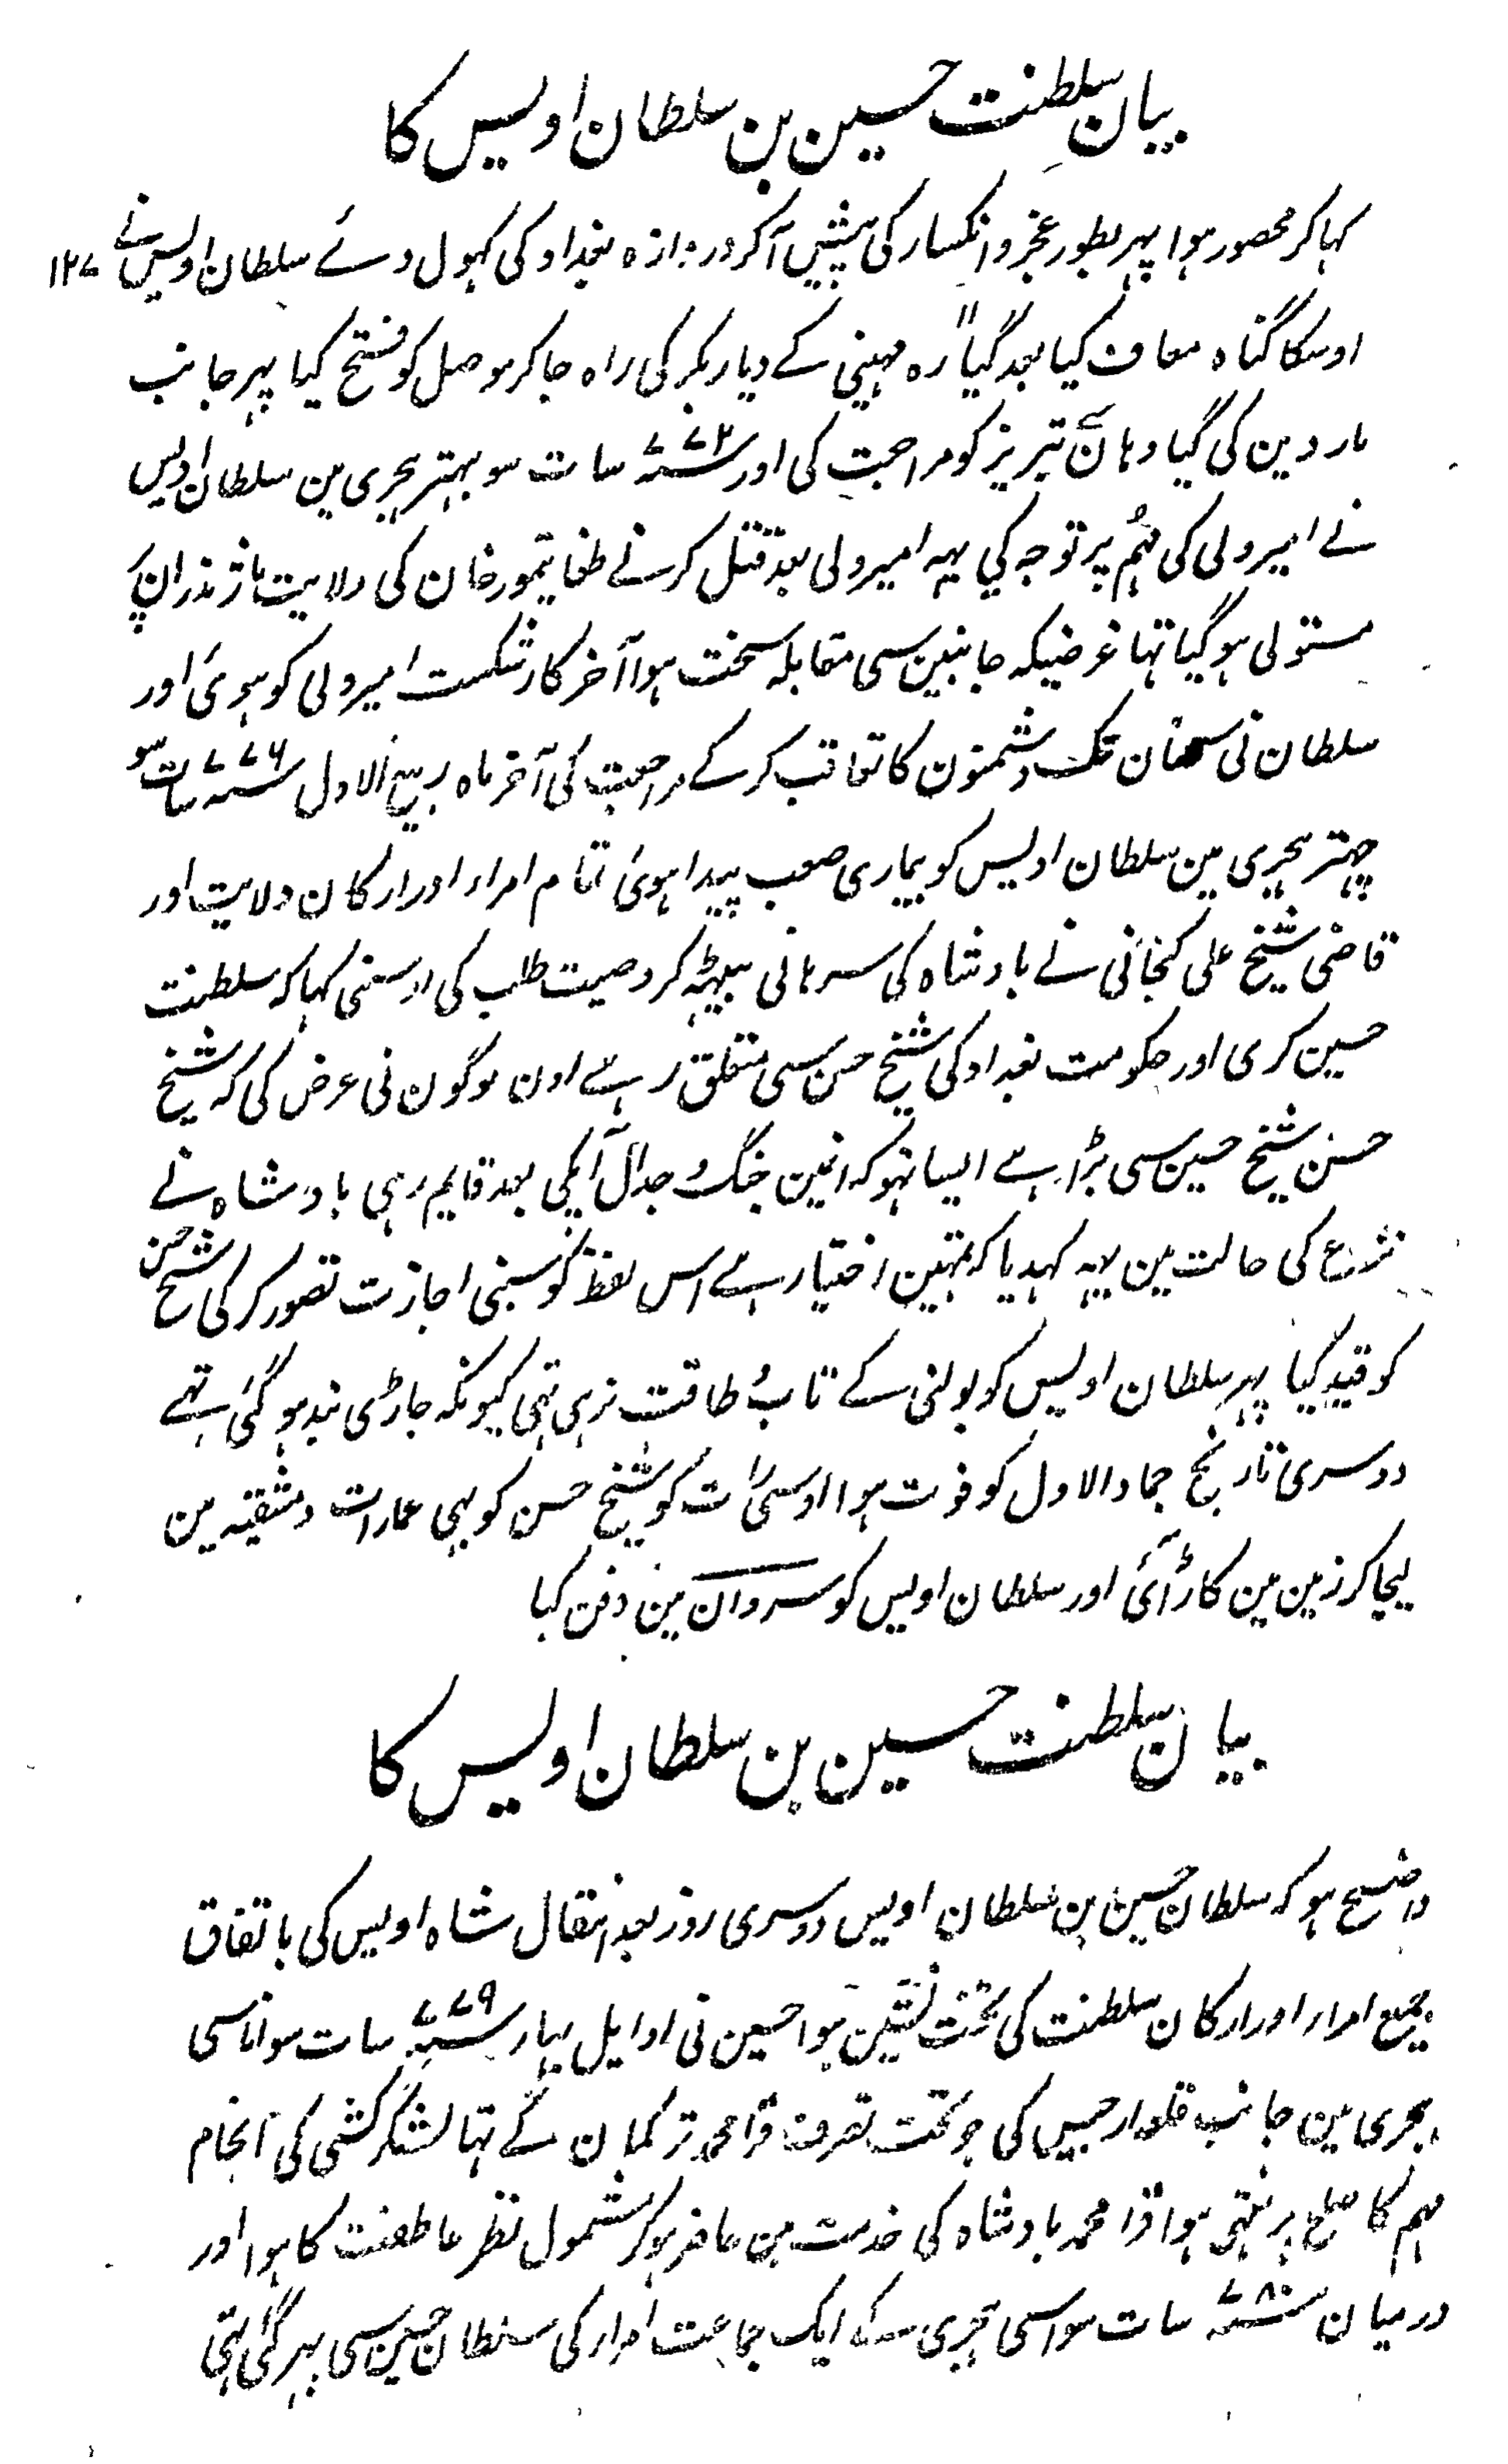 بیان سلطنت حسین بن سلطان اویس کا
کہا کر محصور ہوا پہر بطور عجز و انکسار کی پیش آکر دروازہ بغداد کی کہول دئے سلطان اویس نے ۱۲۷
اوسکا گناہ معاف کیا بعد گیارہ مہینی کے دیار بکر کی راہ جا کر موصل کو فتح کیا پہر جانب
ماردین کی گیا وہانسے تبریز کو مراجعت کی اور ۷۷۲ سنہ سات سو بہتر ہجری مین سلطان اویس
نے امیر ولی کی مہم پر توجہ کی یہہ امیر ولی بعد قتل کرنے طغا تیمور خان کی ولایت ماژندران پر
مستولی ہو گیا تہا غرضیکہ جانبین سی مقابلہ سخت ہوا آخر کار شکست امیر ولی کو ہوئی اور
سلطان نی سمنان تک دشمنون کا تعاقب کر کے مراجعت کی آخر ماہ ربیع الاول ۷۷۶ سنہ سات سو
چہتر ہجری مین سلطان اویس کو بیماری صعب پیدا ہوئی تمام امراء اور ارکان ولایت اور
قاضی شیخ علی کنجانی نے بادشاہ کی سرہانی بیٹہہ کر وصیت طلب کی اوسنی کہا کہ سلطنت
حسین کری اور حکومت بغداد کی شیخ حسن سی متعلق رہے اون لوگون نی عرض کی کہ شیخ
حسن شیخ حسین سی بڑا ہے ایسا نہو کہ انمین جنگ و جدال آپکی بعد قایم رہی بادشاہ نے
نزع کی حالت مین یہہ کہدیا کہ تمہین اختیار ہے اس لفظ کو سبنی اجازت تصور کر کی شیخ حسن
کو قید کیا پہر سلطان اویس کو بولنی کے تاب و طاقت نرہی تہی کیونکہ جاڑی بند ہو گئی تہے
دوسری تاریخ جماد الاول کو فوت ہوا اوسی رات کو شیخ حسن کو بہی عمارات دمشقیہ مین
لیجا کر زمین مین گاڑ آئی اور سلطان اویس کو سروان مین دفن کیا
بیان سلطنت حسین بن سلطان اویس کا
واضح ہو کہ سلطان حسین بن سلطان اویس دوسری روز بعد انتقال شاہ اویس کی باتفاق
جمیع امراء اور ارکان سلطنت کی تخت نشین ہوا حسین نی اوایل بہار ۷۷۹ سنہ سات سو اناسی
ہجری مین جانب قلعہ ارجیس کی جو تحت تصرف قرا محمد ترکمان کے تہا لشکر کشی کی انجام
مہم کا صلح پر منتہی ہوا قرا محمد بادشاہ کی خدمت مین حاضر ہو کر مشمول نظر عاطفت کا ہوا اور
درمیان ۷۸۰ سنہ سات سو اسی ہجری کے ایک جماعت امراء کی سلطان حسین سی پہر گئی تہی